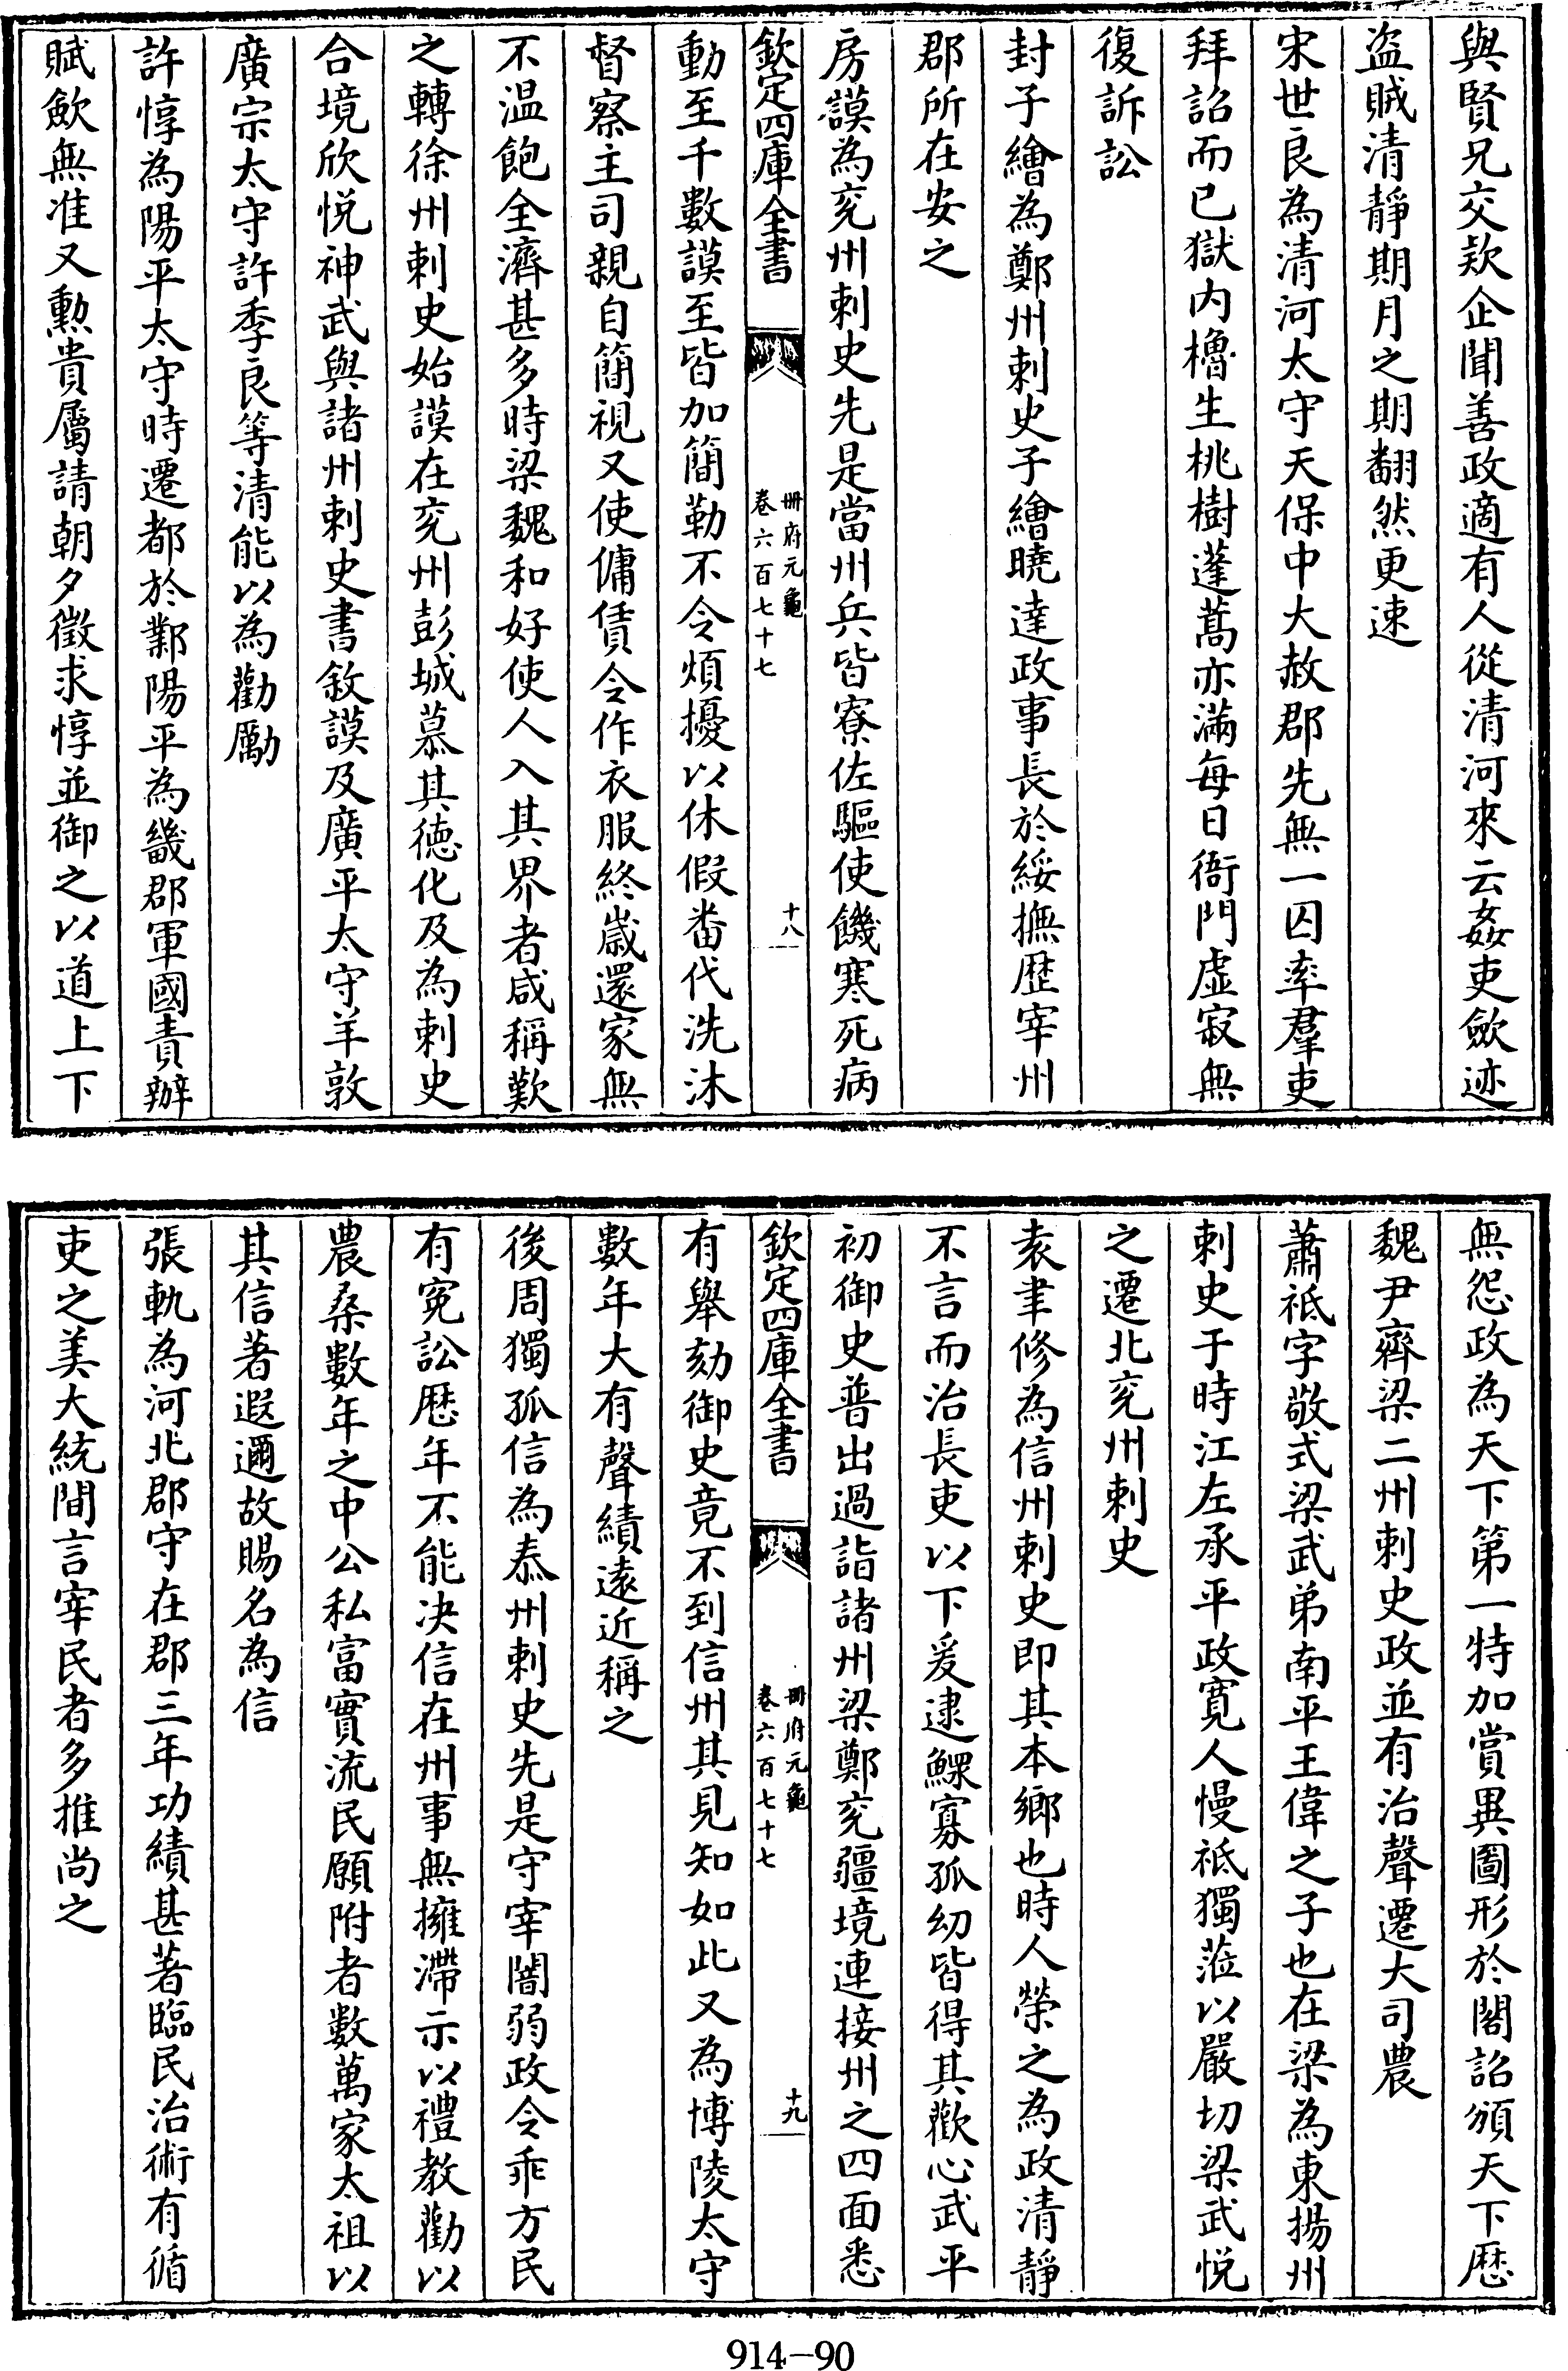 與賢兄交款企聞善政適有人從清河來云姦吏歛迹
盜賊清靜期月之期翻然更速
宋世良為清河太守天保中大赦郡先無一囚率羣吏
拜詔而已獄内櫓生桃樹蓬蒿亦滿每日衙門虛寂無
復訴訟
封子繪為鄭州刺史子繪曉達政事長於綏撫歴宰州
郡所在安之
房謨為兖州刺史先是當州兵皆寮佐驅使饑寒死病
欽定四庫全書
冊府元龜
卷六百七十七
十八
動至千數謨至皆加簡勒不令煩擾以休假畨代洗沐
督察主司親自簡視又使傭賃令作衣服終嵗還家無
不温飽全濟甚多時梁魏和好使人入其界者咸稱歎
之轉徐州刺史始謨在兖州彭城慕其徳化及為刺史
合境欣悦神武與諸州刺史書敘謨及廣平太守羊敦
廣宗太守許季良等清能以為勸勵
許惇為陽平太守時遷都於鄴陽平為畿郡軍國責辦
賦歛無准又勲貴屬請朝夕徵求惇並御之以道上下
無怨政為天下第一特加賞異圖形於閣詔頒天下歴
魏尹齊梁二州刺史政並有治聲遷大司農
蕭祗字敬式梁武弟南平王偉之子也在梁為東揚州
刺史于時江左承平政寛人慢祗獨蒞以嚴切梁武悦
之遷北兖州刺史
袁聿修為信州刺史即其本鄉也時人榮之為政清靜
不言而治長吏以下爰逮鰥寡孤幼皆得其歡心武平
初御史普出過詣諸州梁鄭兖疆境連接州之四面悉
欽定四庫全書
冊府元龜
卷六百七十七
十九
有舉劾御史竟不到信州其見知如此又為博陵太守
數年大有聲績遠近稱之
後周獨孤信為泰州刺史先是守宰闇弱政令乖方民
有寃訟歴年不能决信在州事無擁滯示以禮教勸以
農桑數年之中公私富實流民願附者數萬家太祖以
其信著遐邇故賜名為信
張軌為河北郡守在郡三年功績甚著臨民治術有循
吏之美大統間言宰民者多推尚之
914-90